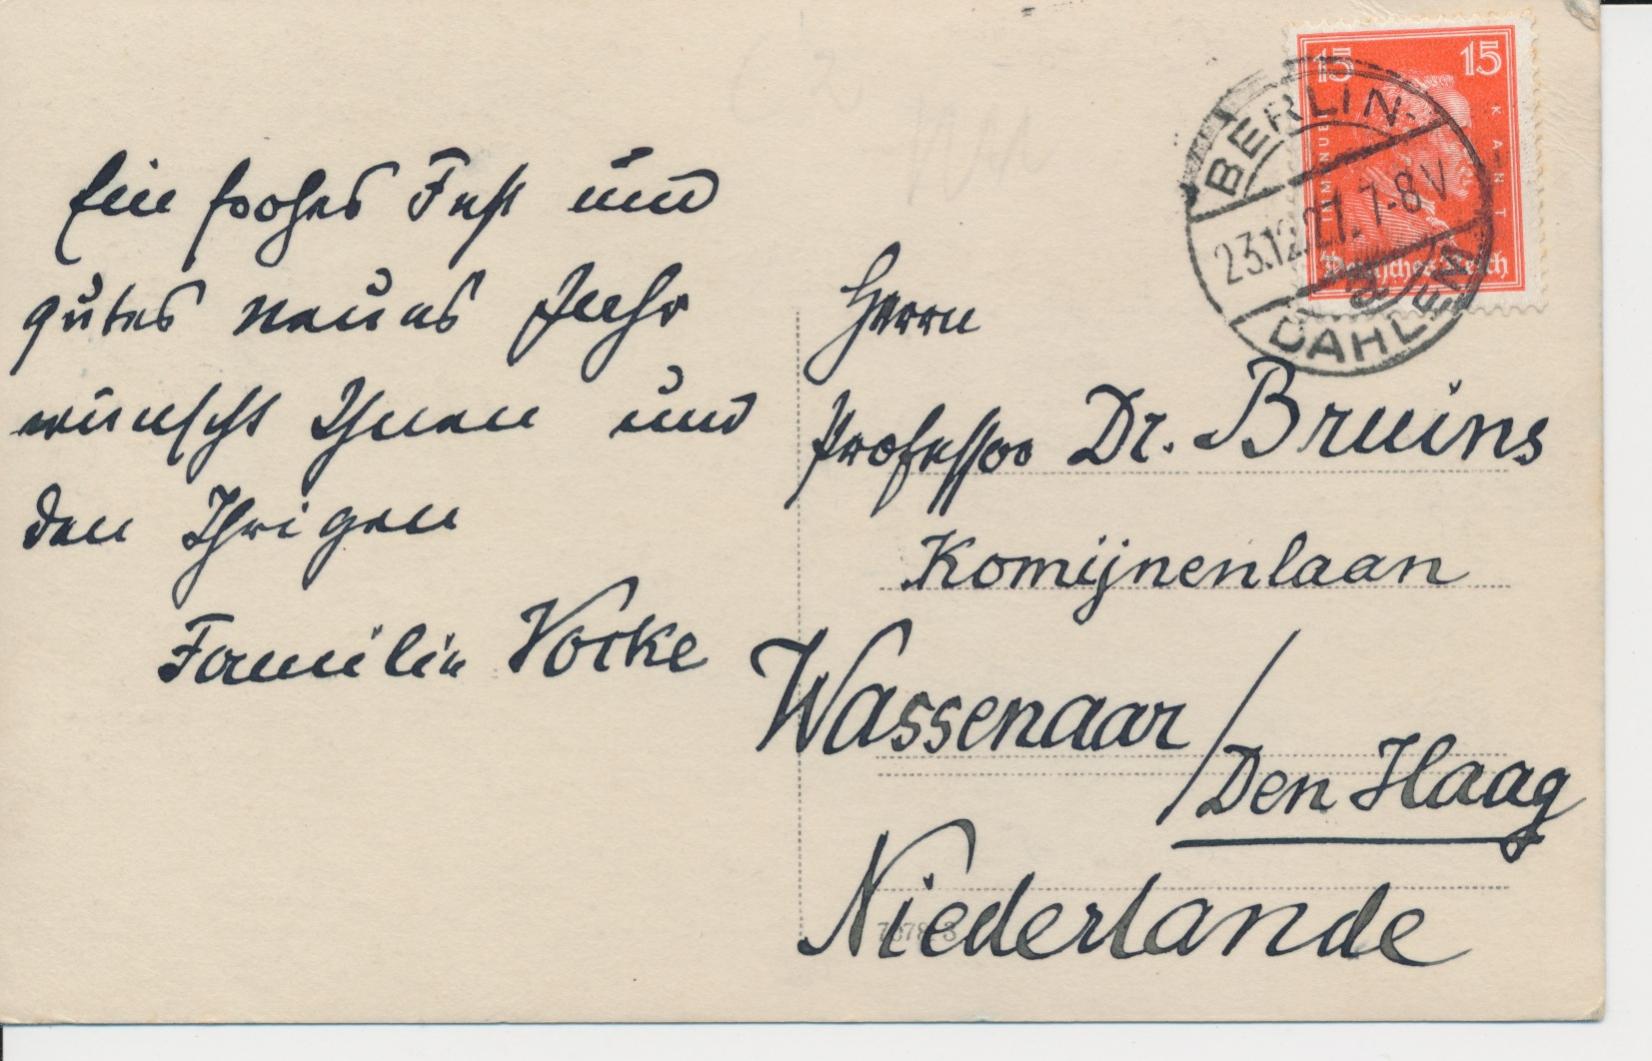 Ein frohes Fest und
gutes neues Jahr
wünscht Ihnen und
den Ihrigen
Familie Vocke
15 15
IMMANUEL KANT
Deutsches Reich
BERLIN-
23.12.27. 7-8 V
DAHLEM
Herrn
Professor Dr. Bruins
Komijnenlaan
Wassenaar /
Den Haag
Niederlande